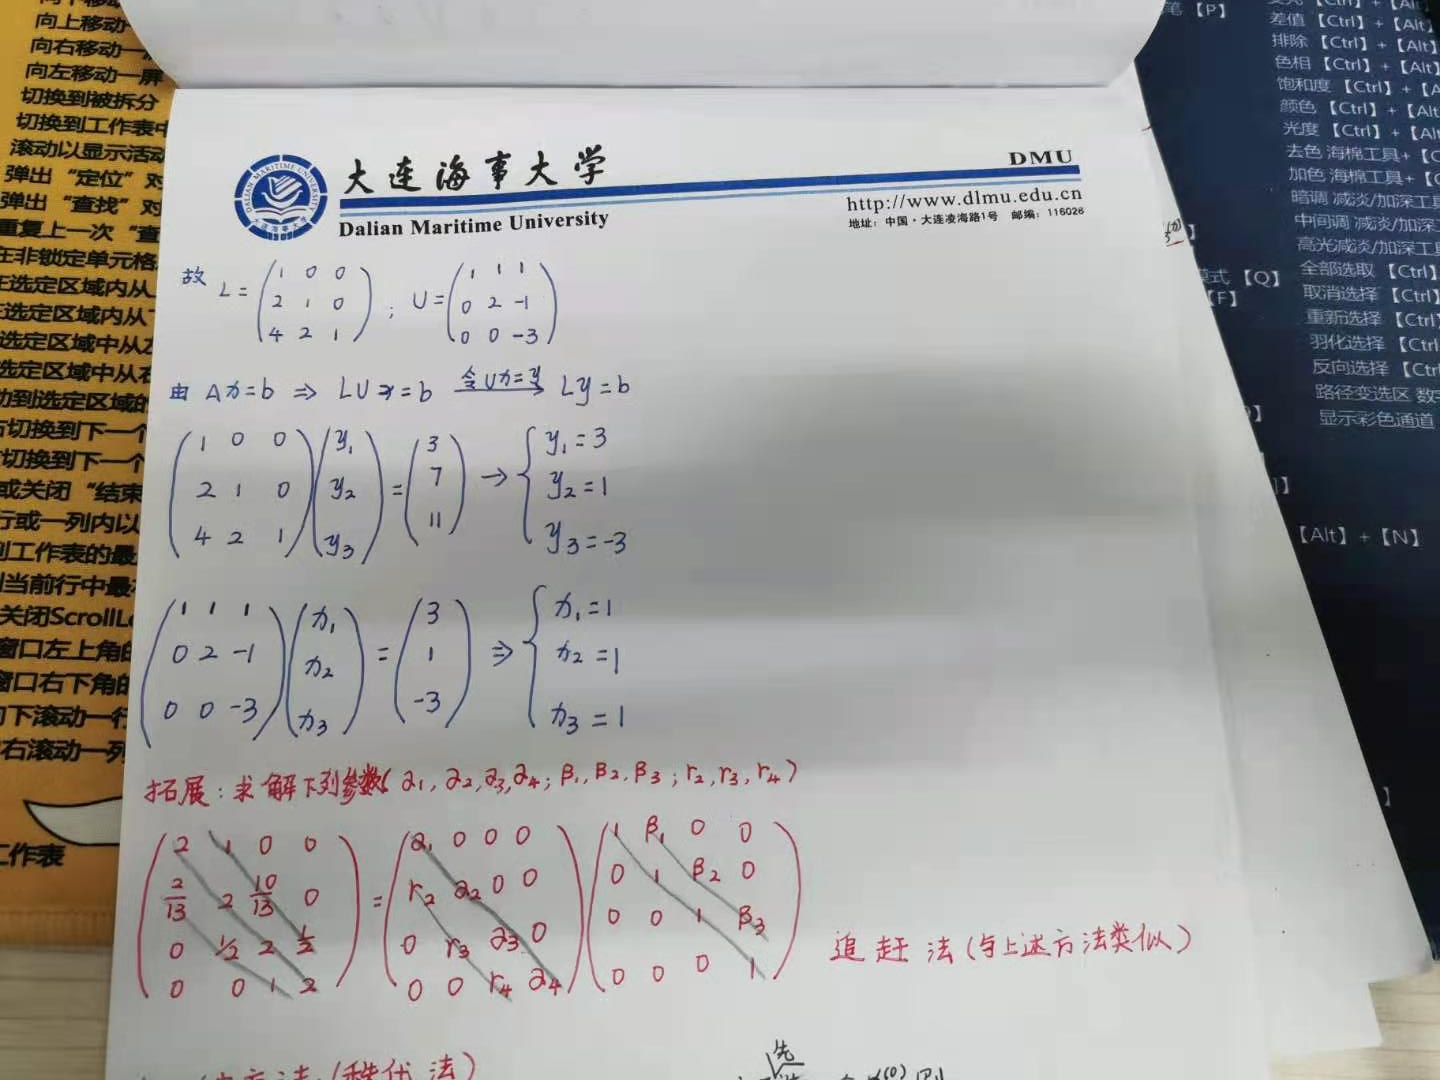 向上移动一
向右移动一
向左移动一屏
切换到被拆分
切换到工作表中
滚动以显示活动
弹出“定位”对
弹出“查找”对
重复上一次“查
在非锁定单元格
在选定区域内从
在选定区域内从下
选定区域中从左
选定区域中从右
动到选定区域的
右切换到下一个
切换到下一个
或关闭“结束
行或一列内以
到工作表的最
到当前行中最
关闭ScrollLo
窗口左上角的
窗口右下角的
向下滚动一行
右滚动一列
工作表
大连海事大学
Dalian Maritime University
DALIAN MARITIME UNIVERSITY
大连海事大学
DMU
http://www.dlmu.edu.cn
地址：中国·大连凌海路1号 邮编：116026
故 L= (1 0 0; 2 1 0; 4 2 1) ; U= (1 1 1; 0 2 -1; 0 0 -3)
由 Ax=b ⇒ LUx=b 令Ux=y → Ly=b
(1 0 0; 2 1 0; 4 2 1)(y₁; y₂; y₃) = (3; 7; 11) → { y₁=3; y₂=1; y₃=-3
(1 1 1; 0 2 -1; 0 0 -3)(x₁; x₂; x₃) = (3; 1; -3) ⇒ { x₁=1; x₂=1; x₃=1
拓展：求解下列参数(α₁, α₂, α₃, α₄; β₁, β₂, β₃; r₂, r₃, r₄)
(2 1 0 0; 2/13 2 10/13 0; 0 1/2 2 1/2; 0 0 1 2) = (α₁ 0 0 0; r₂ α₂ 0 0; 0 r₃ α₃ 0; 0 0 r₄ α₄)(1 β₁ 0 0; 0 1 β₂ 0; 0 0 1 β₃; 0 0 0 1)
追赶法(与上述方法类似)
笔【P】
差值【Ctrl】+【Alt】
排除【Ctrl】+【Alt】
色相【Ctrl】+【Alt】
饱和度【Ctrl】+【A
颜色【Ctrl】+【Alt
光度【Ctrl】+【Alt
去色 海棉工具+【C
加色 海棉工具+【C
暗调 减淡/加深工具
中间调 减淡/加深工
高光减淡/加深工具
模式【Q】
全部选取【Ctrl】
【F】
取消选择【Ctrl】
重新选择【Ctrl
羽化选择【Ctrl
反向选择【Ctrl
路径变选区 数字
显示彩色通道
【Alt】+【N】